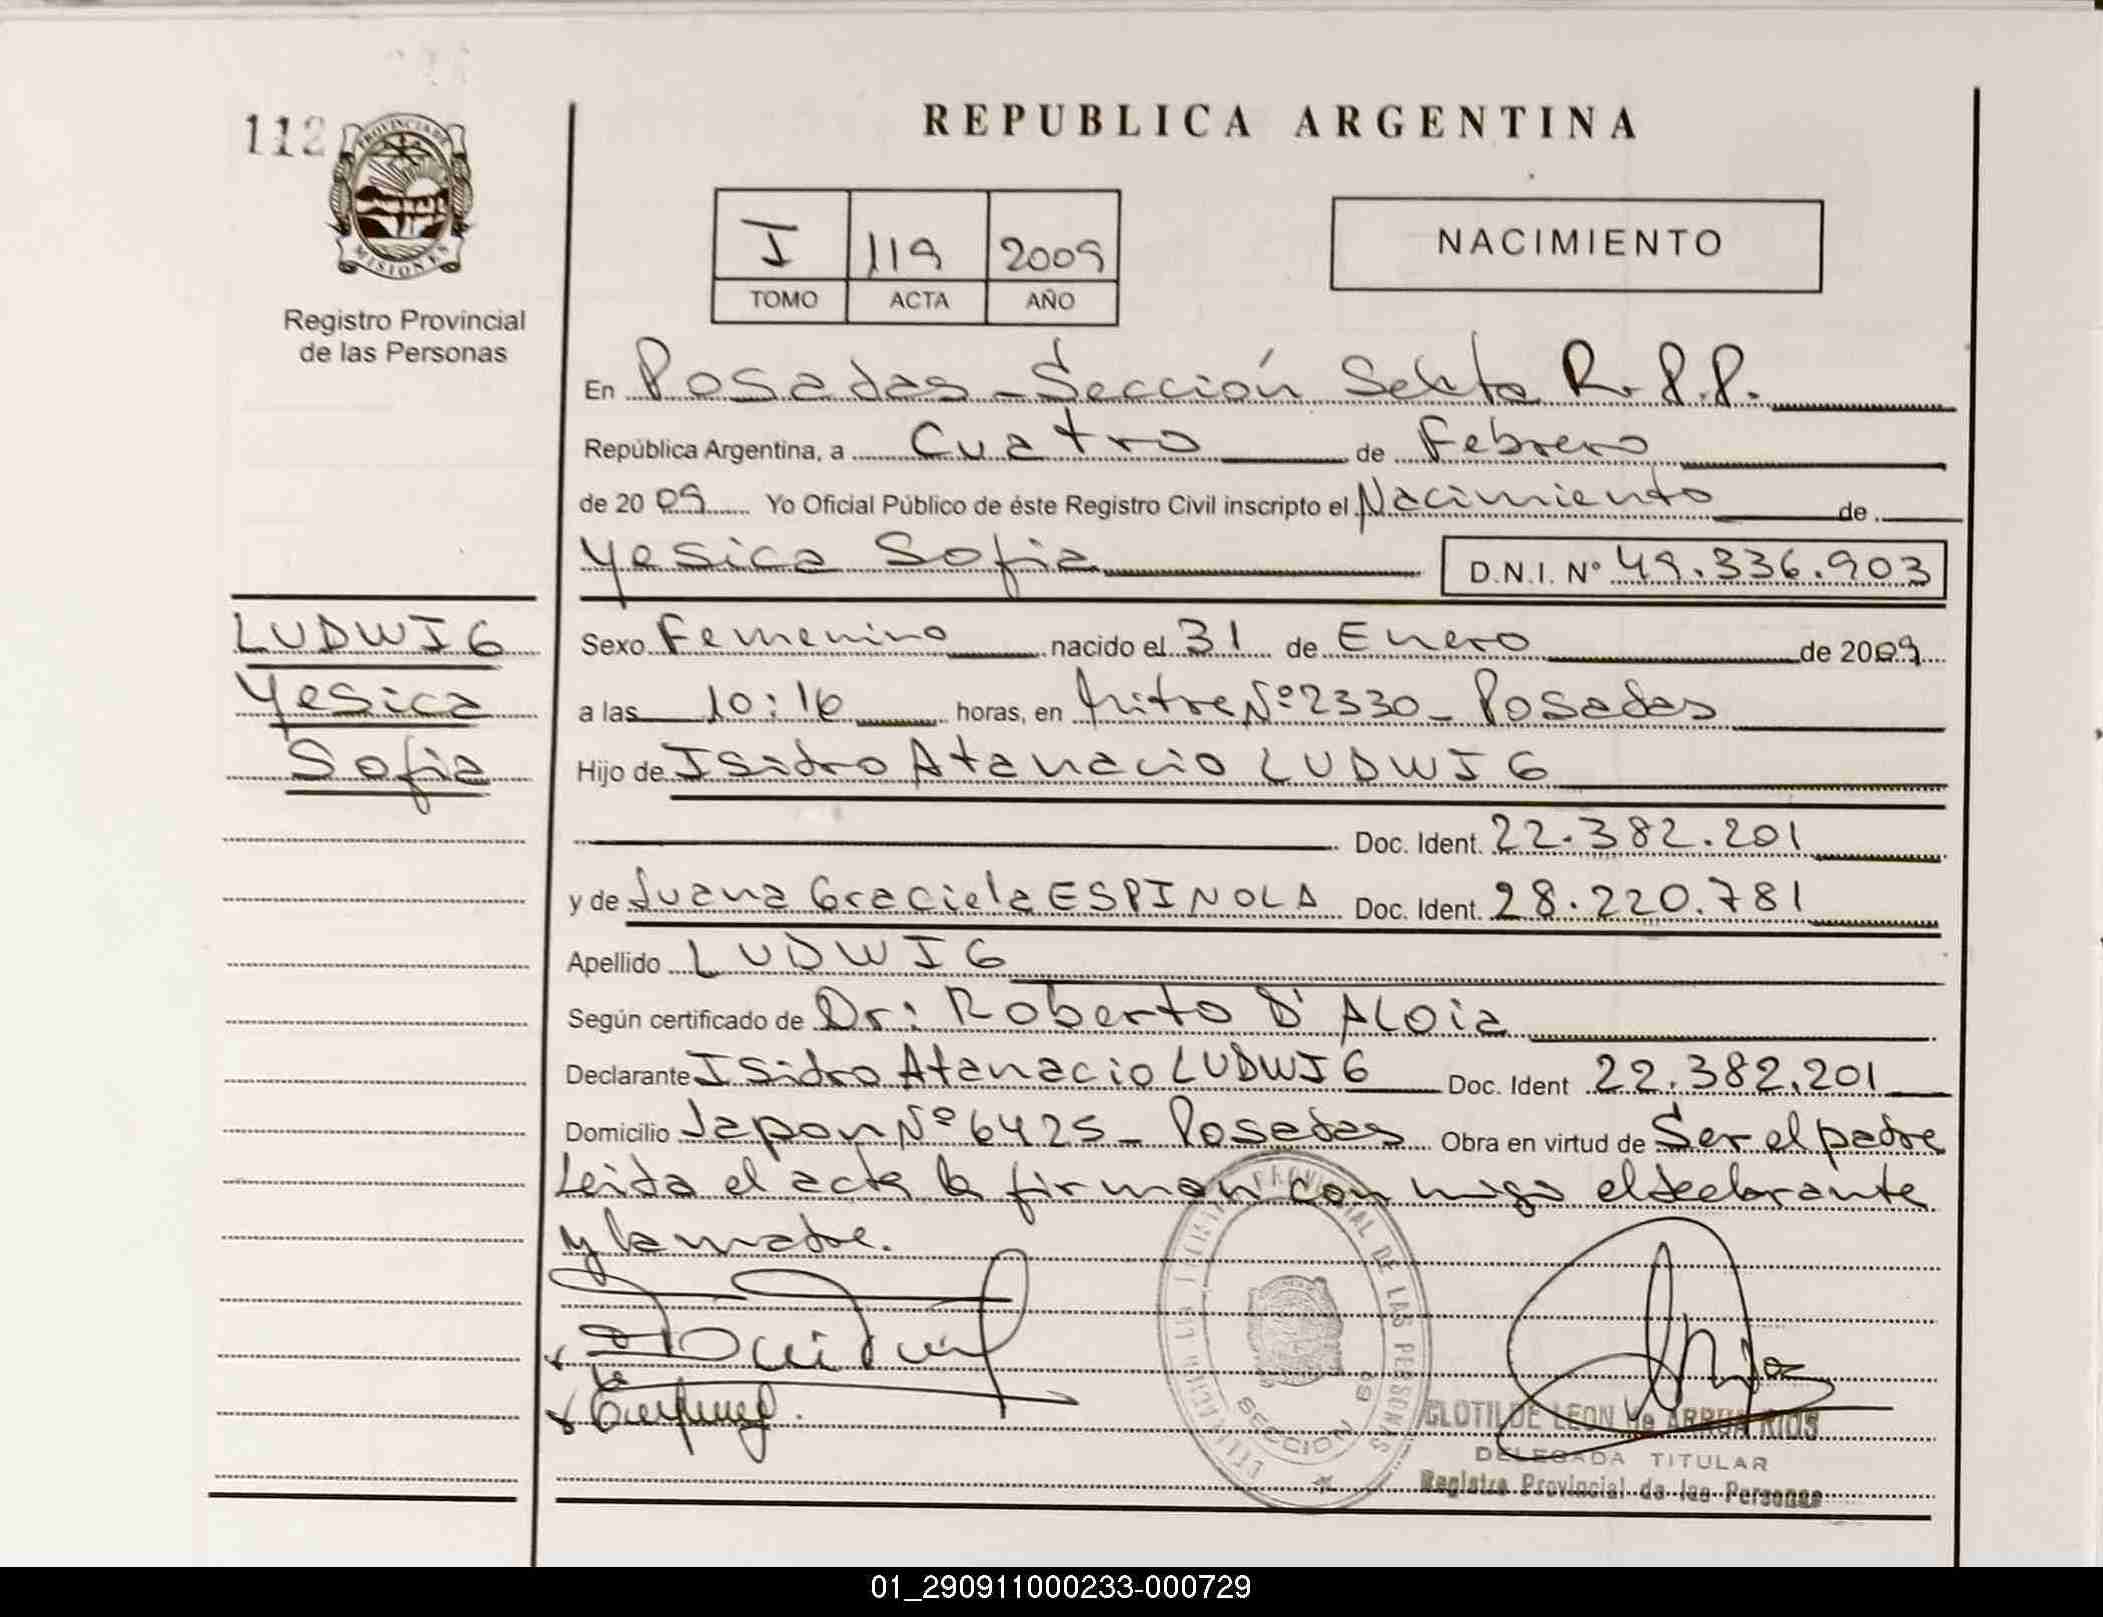 112
PROVINCIA DE
MISIONES
Registro Provincial
de las Personas
REPUBLICA ARGENTINA
I 119 2009
TOMO ACTA AÑO
NACIMIENTO
En Posadas - Sección Sexta R.P.P.
República Argentina, a Cuatro de Febrero
de 2009 Yo Oficial Público de éste Registro Civil inscripto el Nacimiento de
Yesica Sofia D.N.I. Nº 49.336.903
LUDWIG
Yesica
Sofia
Sexo Femenino nacido el 31 de Enero de 2009
a las 10:16 horas, en Mitre Nº 2330 - Posadas
Hijo de Isidro Atanacio LUDWIG
Doc. Ident. 22.382.201
y de Juana Graciela ESPINOLA Doc. Ident. 28.220.781
Apellido LUDWIG
Según certificado de Dr: Roberto D'ALOia
Declarante Isidro Atanacio LUDWIG Doc. Ident 22.382.201
Domicilio Japon Nº 6425 - Posadas Obra en virtud de Ser el padre
Leida el acta la firman con migo el declarante
y la madre.
PROVINCIAL DE LAS PERSONAS
SECCION
CLOTILDE LEON de ARRUA RIOS
DELEGADA TITULAR
Registro Provincial de las Personas
01_290911000233-000729